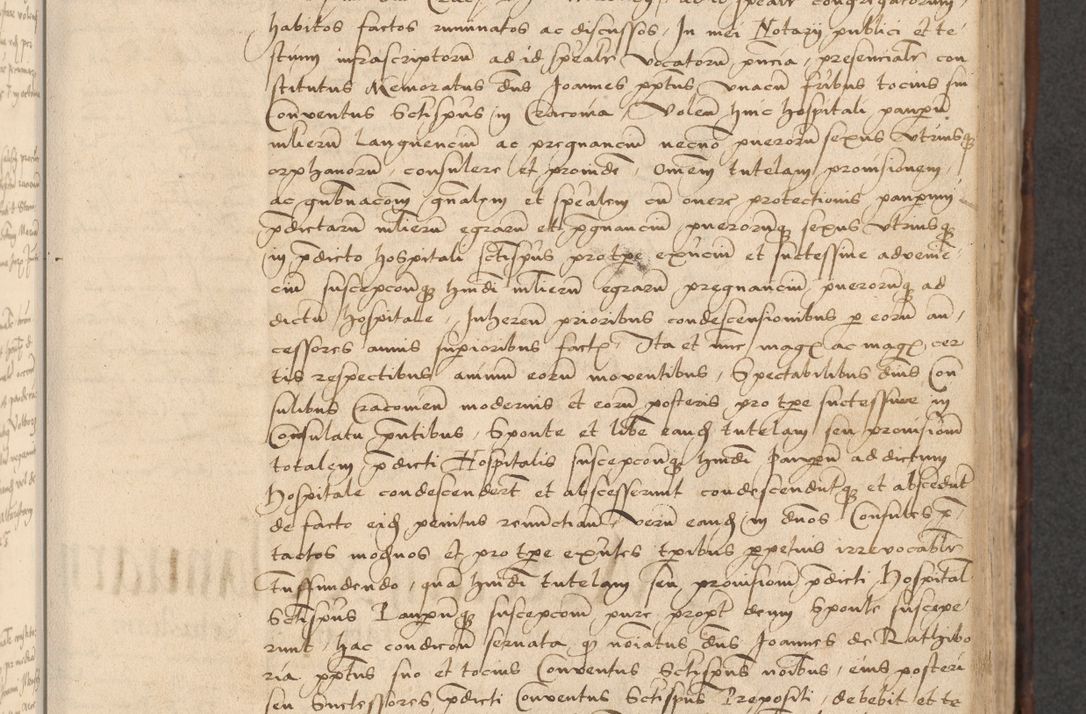 habitos factos ruminatos ac discussos, In mei Notarij publici et te
stium infrascriptorum ad id spealr vocatorum pncia, presencialr con
stitutus Memoratus dns Joannes ppttus, vnacum fribus tocius sui
Conventus Sctispus in Cracovia, Volen huic hospitali pauperum
mlierum Languencium ac pregnancium necno puerorum sexus vtriusq
orphanorum, consulere et providere, Omem tutelam provisionem,
ac gubnacom gnalem et spealem cum onere protectionis pauperum
pdictarum mlierum egrarum et pgnancium puerorumq sexus vtriusq
in pdicto hospitali sctispus pro tpe exncium et successive advenie
cium suscepconq hmdi mlierum egrarum pregnancium, puerorumq ad
dictum hospitale, Inheren prioribus condescensionibus per eorum an,
cessores annis superioribus fact, Ita et nunc mag ac mag, cer
tis respectibus animum eorum moventibus, Spectabilibus dnis Con
sulibus Cracovien modernis et eorum posteris pro tpe successive in
Consulatu pntibus, Sponte et libe eand tutelam seu provisionem
totalem pdicti Hospitalis suscepconq hmdi Pauperum ad dictum
Hospitale condescenderunt et abscesserunt condescenduntq et abscedunt
de facto eid penitus renunctian, verum eand in dnos Consules p
tactos modernos et pro tpe exntes tpibus perpetuis irrevocablr
tuffundendo, qua hmdi tutelam seu provisionem pdicti Hospital
Sctispus Pauperumq suscepcom pure propt deum Sponte suscepe
runt, hac condicom servata q noiatus dns Joannes de Rathibo
ria ppttus suo et tocius Conventus Sctispus noibus, eius posteri
seu Successores pdicti Conventus Sctispus Prepositi, debebit et te